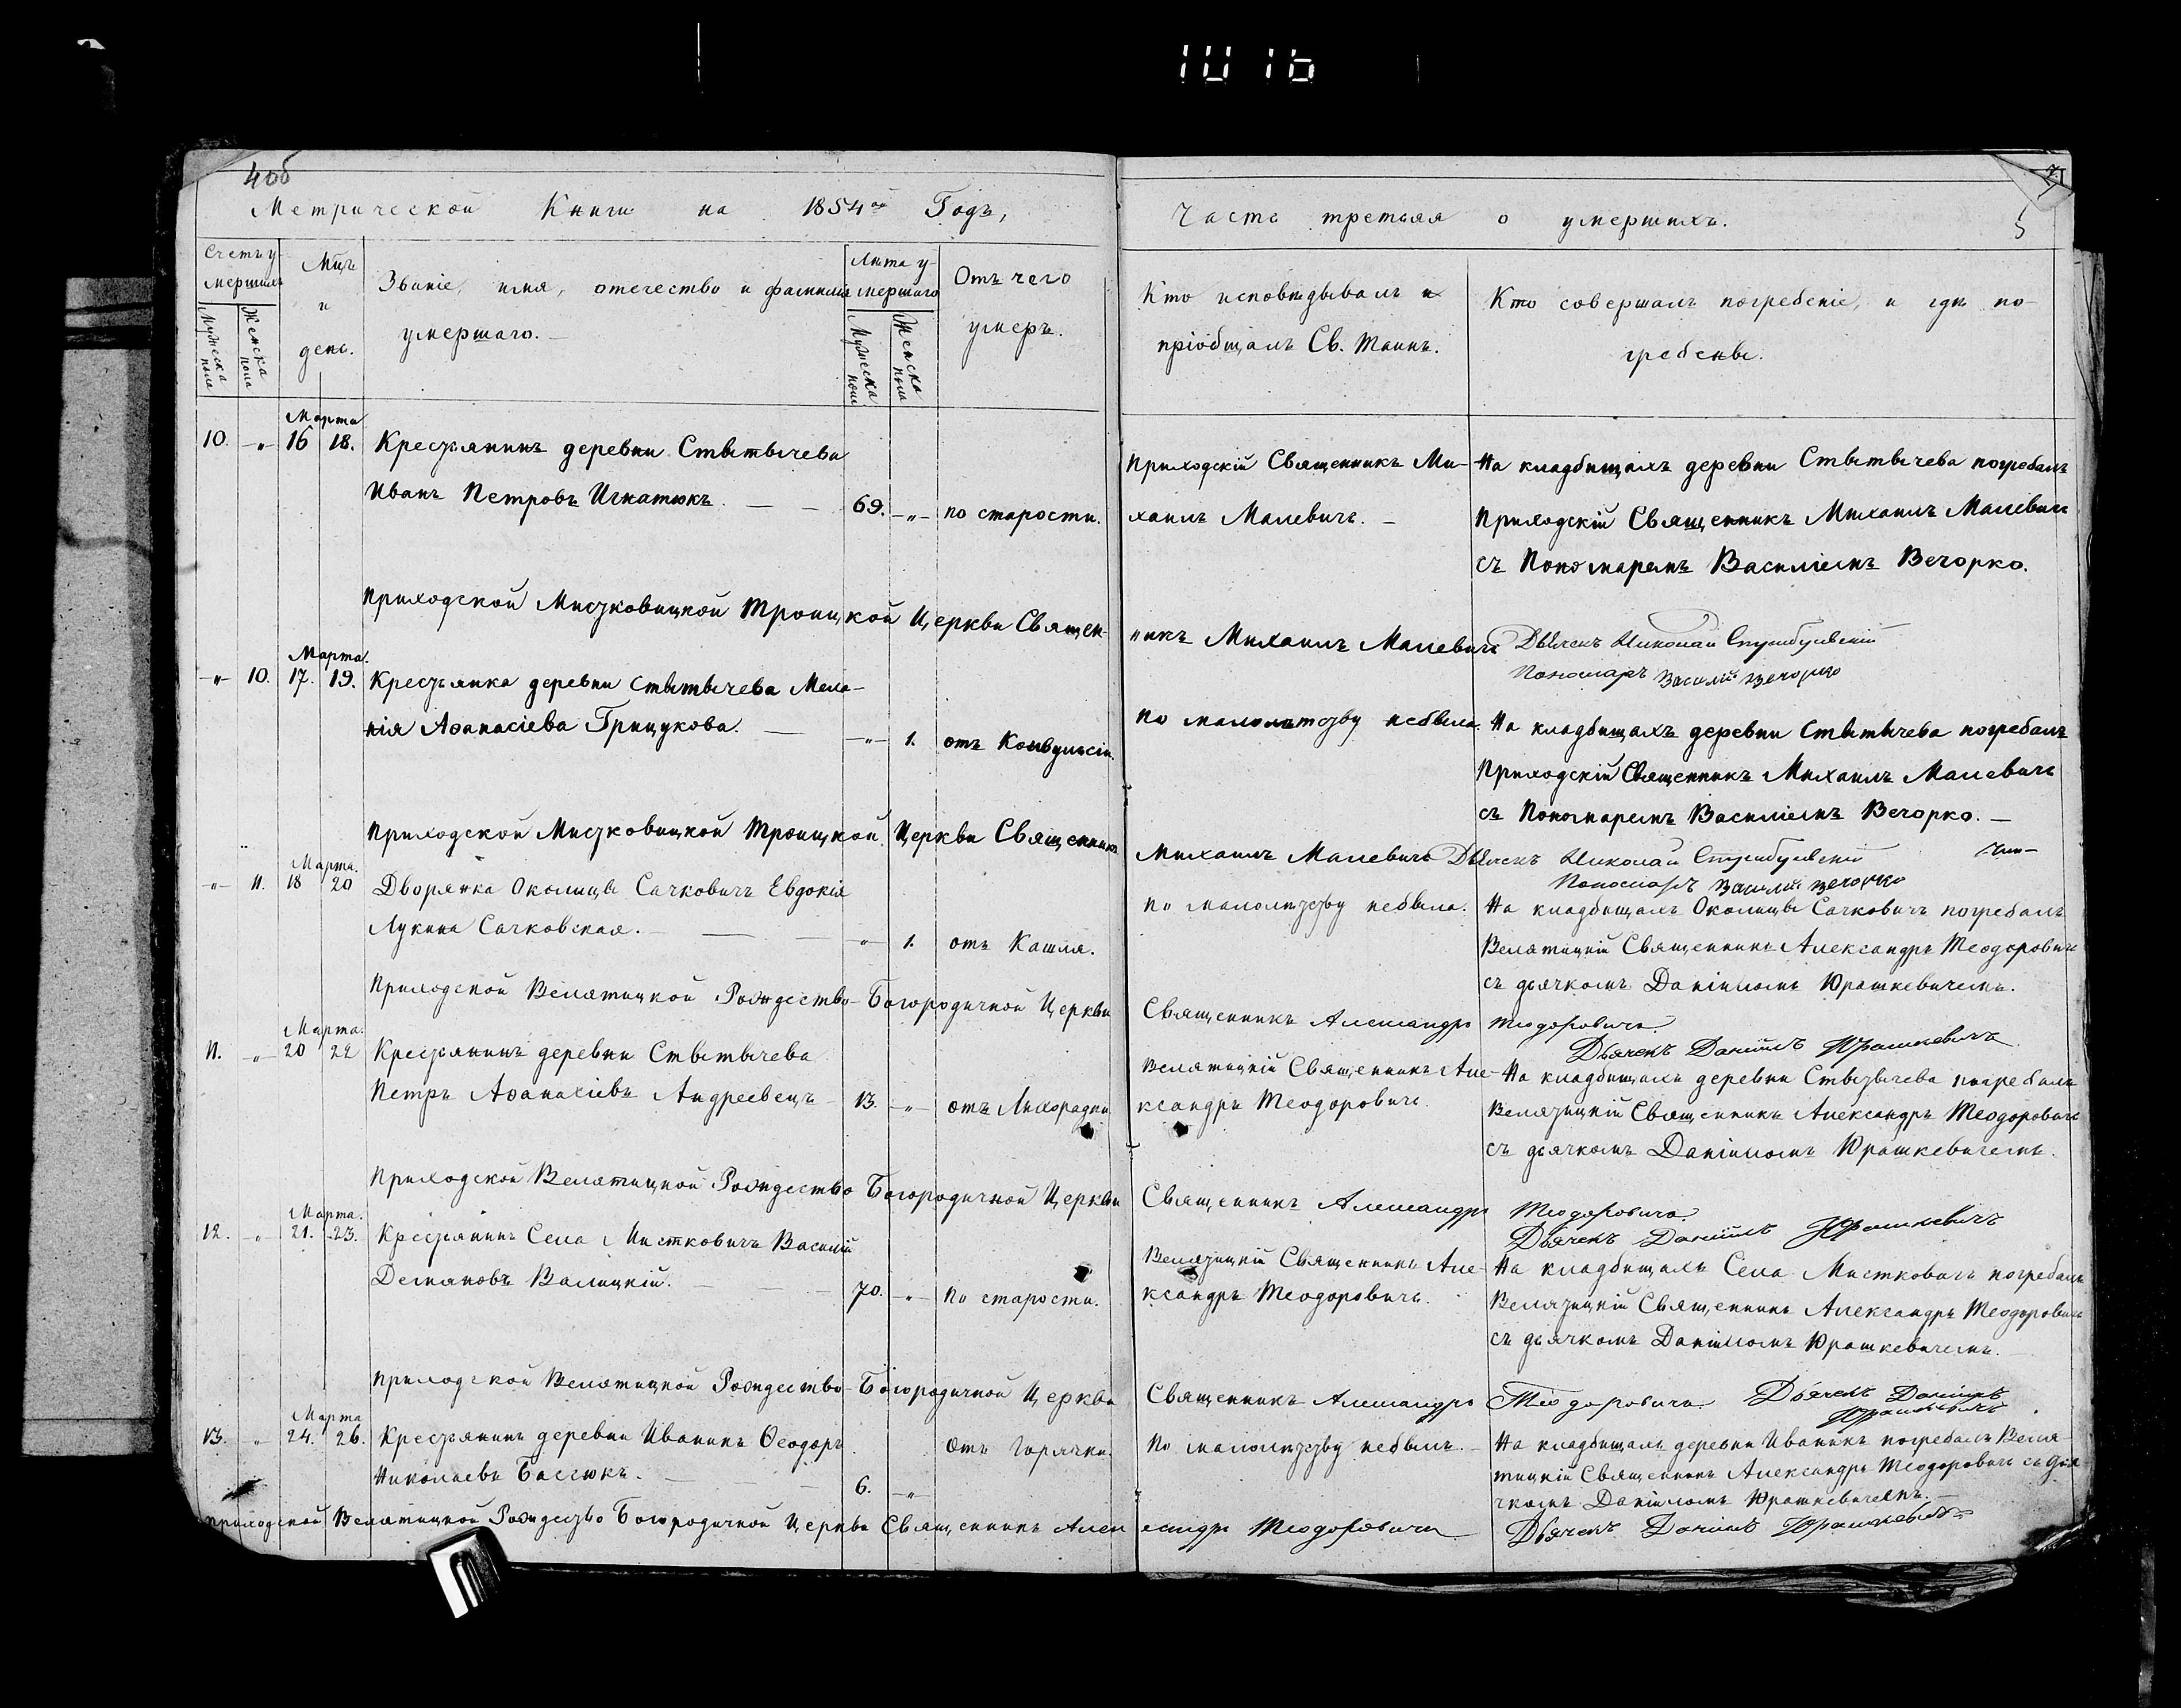 1016
40об
Метрической Книги на 1854ой Годъ,
Часть третьяя о умершихъ.
5
Счетъ умершихъ
Мужеска пола
Женска пола
Мцъ и день.
Званіе, имя, отечество и фамилія умершаго.
Лѣта умершаго
Мужеска пола
Женска пола
Отъ чего умеръ.
Кто исповѣдывалъ и пріобщалъ Св. Таинъ.
Кто совершалъ погребеніе, и гдѣ погребены.
Марта
10. -"- 16 18. Крестьянинъ деревни Стытычева
Иванъ Петровъ Игнатюкъ. 69. -"- по старости.
Приходскій Священникъ Михаилъ Малевичь.
На кладбищахъ деревни Стытычева погребалъ
Приходскій Священникъ Михаилъ Малевичь
съ Пономаремъ Василіемъ Вечорко.
Приходской Мистковицкой Троицкой Церкви Священникъ Михаилъ Малевичь Дьячекъ Николай
Пономарь Василій Вечорко
Марта.
-"- 10. 17. 19. Крестьянка деревни Стытычева Мела-
нія Аѳанасіева Грицукова. -"- 1. отъ Конвульсіи.
По малолѣтству небыла.
На кладбищахъ деревни Стытычева погребалъ
Приходскій Священникъ Михаилъ Малевичь
съ Пономаремъ Василіемъ Вечорко.
Приходской Мистковицкой Троицкой Церкви Священникъ Михаилъ Малевичь Дьячекъ Николай
Пономарь Василій Вечорко
Марта.
-"- 11. 18 20 Дворянка Околицы Сачковичь Евдокія
Лукина Сачковская. -"- 1. отъ Кашля.
По малолѣтству небыла.
На кладбищахъ Околицы Сачковичь погребалъ
Велятицкій Священникъ Александръ Теодоровичь
съ дьячкомъ Даніиломъ Юрашкевичемъ.
Приходской Велятицкой Рождество-Богородичной Церкви Священникъ Александръ Теодоровичъ.
Дьячекъ Даніилъ Юрашкевичъ.
Марта.
11. -"- 20 22 Крестьянинъ деревни Стытычева
Петръ Аѳанасіевъ Андреевецъ 13. -"- отъ Лихорадки.
Велятицкій Священникъ Александръ Теодоровичь.
На кладбищахъ деревни Стытычева погребалъ
Велятицкій Священникъ Александръ Теодоровичь
съ дьячкомъ Даніиломъ Юрашкевичемъ.
Приходской Велятицкой Рождество-Богородичной Церкви Священникъ Александръ Теодоровичъ.
Дьячекъ Даніилъ Юрашкевичъ
Марта.
12. -"- 21. 23. Крестьянинъ Села Мистковичь Василій
Демяновъ Валицкій. 70. -"- По старости.
Велятицкій Священникъ Александръ Теодоровичь.
На кладбищахъ Села Мистковичь погребалъ
Велятицкій Священникъ Александръ Теодоровичь
съ дьячкомъ Даніиломъ Юрашкевичемъ.
Приходской Велятицкой Рождество-Богородичной Церкви Священникъ Александръ Теодоровичъ. Дьячекъ Даніилъ
Юрашкевичъ
Марта
13. " 24. 26. Крестьянинъ деревни Иваникъ Ѳеодоръ
Николаевъ Басюкъ. 6. -"- Отъ Горячки.
По малолѣтству небылъ.
На кладбищахъ деревни Иваникъ погребалъ Веля-
тицкій Священникъ Александръ Теодоровичь съ дья-
чкомъ Даніиломъ Юрашкевичемъ.
Приходской Велятицкой Рождество Богородичной Церкви Священникъ Александръ Теодоровичъ
Дьячекъ Даніилъ Юрашкевичъ